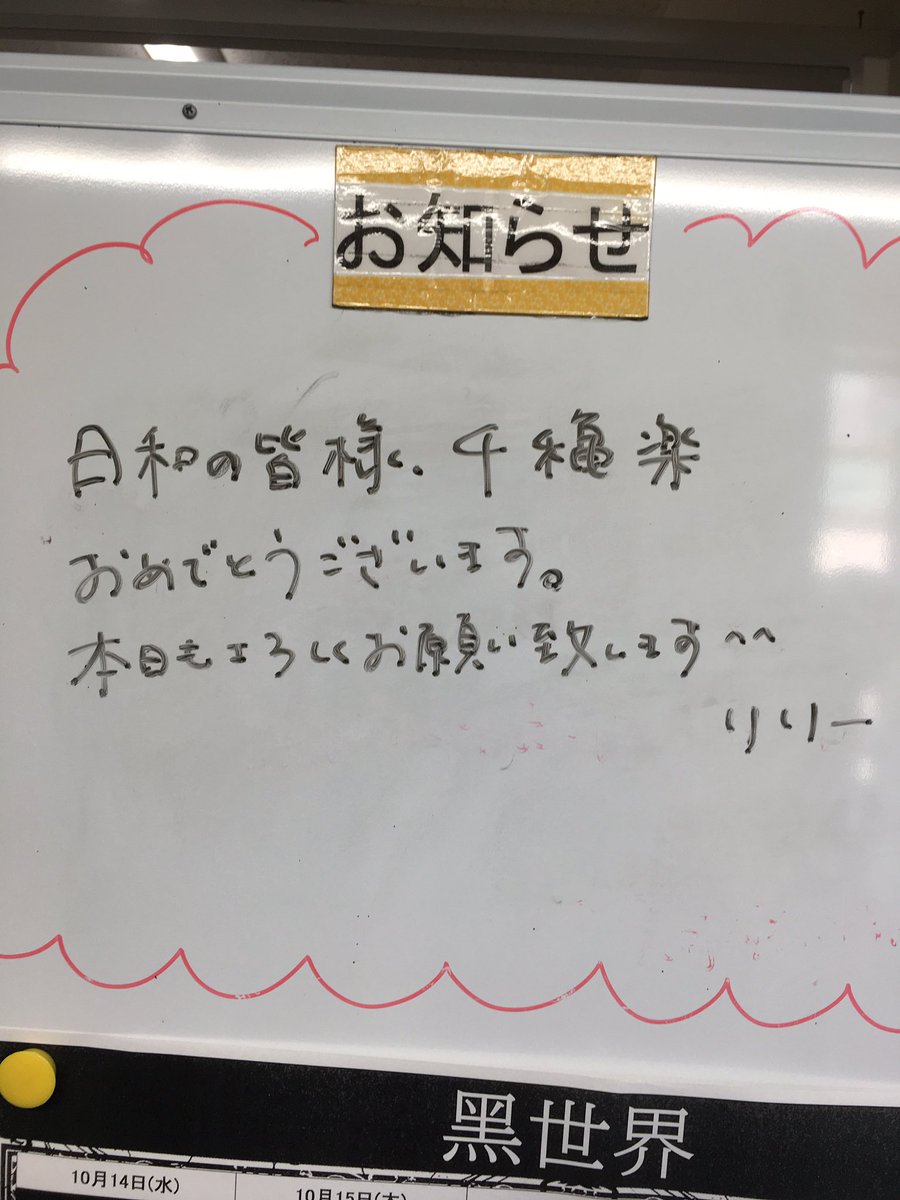 お知らせ
日和の皆様、千穐楽
おめでとうございます。
本日もよろしくお願い致します^^
リリー
黒世界
10月14日(水)
10月15日(木)